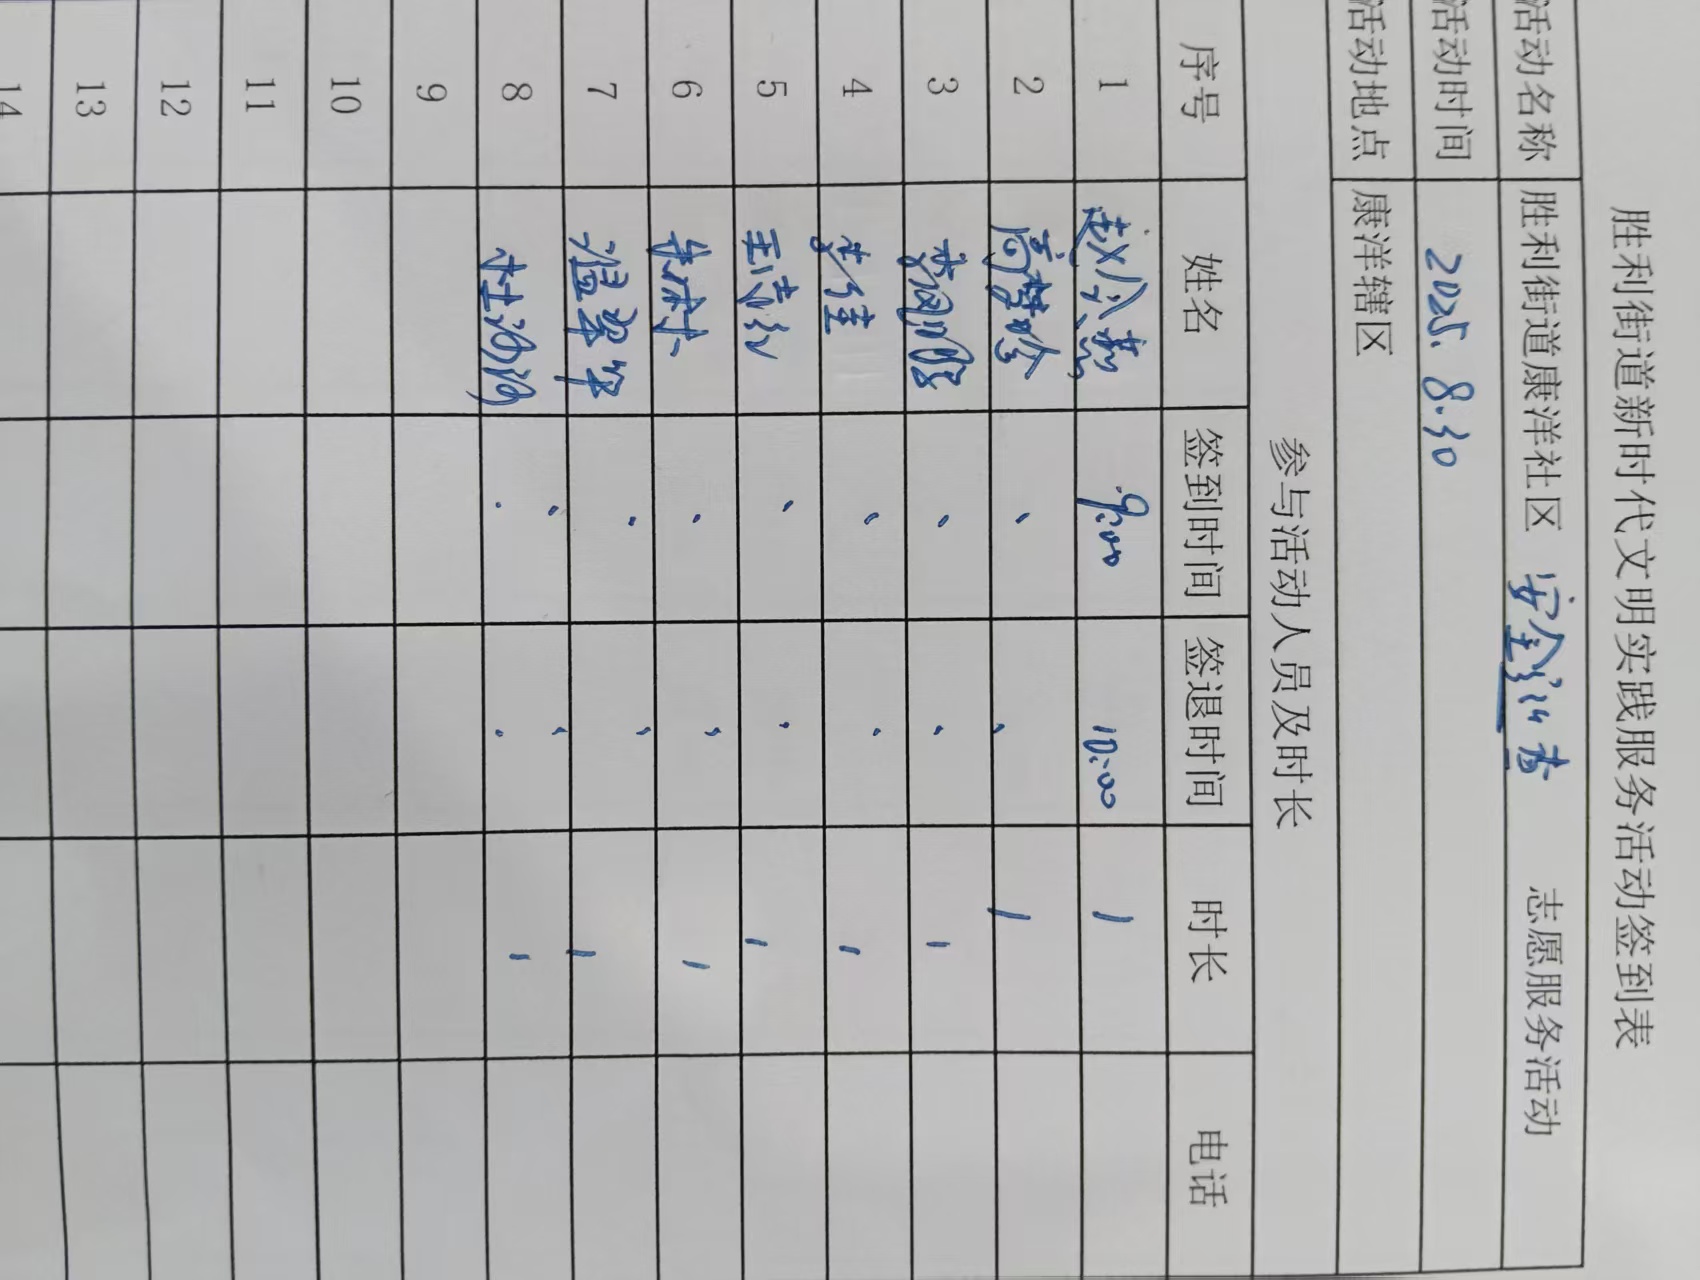 胜利街道新时代文明实践服务活动签到表
活动名称 胜利街道康洋社区 安全排查 志愿服务活动
活动时间 2025.8.30
活动地点 康洋辖区
参与活动人员及时长
序号 姓名 签到时间 签退时间 时长 电话
1 赵公燕 9:00 10:00 1
2 高梦珍 、 、 1
3 李凤明 、 、 1
4 李佳 、 、 1
5 王志红 、 、 1
6 朱林 、 、 1
7 温翠华 、 、 1
8 杜海河 、 、 1
9
10
11
12
13
14